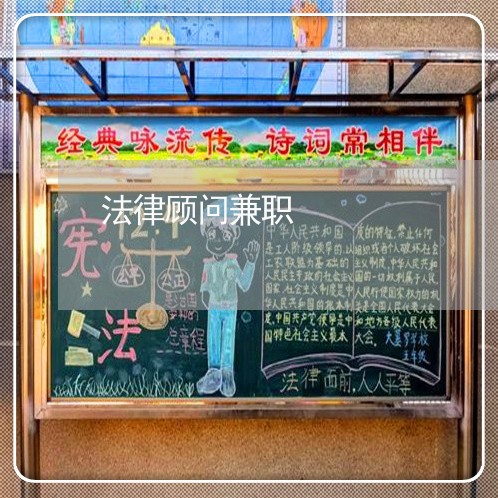 经典咏流传 诗词常相伴
法律顾问兼职
12.4
宪
法
公平 公正
总章程
中华人民共和国
是工人阶级领导的,以
工农联盟为基础的
人民民主专政的社会主义
国家,社会主义制度是中
华人民共和国的根本制
度,中国共产党领导是中
国特色社会主义最本
质的特征,禁止任何
组织或者个人破坏社会
主义制度,中华人民共和
国的一切权利属于人民,
人民行使国家权力的机
关是全国人民代表大会
和地方各级人民代表
大会.
五年级
法律面前,人人平等